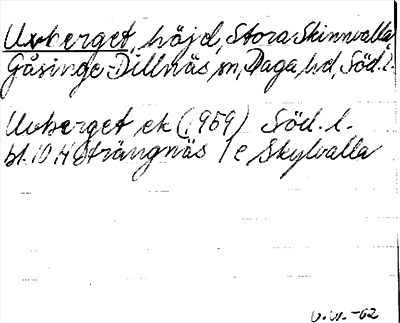 Uvberget, höjd, Stora Skinnvalla
Gåsinge-Dillnäs sn, Daga hd, Söd. l.
Uvberget ek (1959) Söd. l.
bl. 10 H Strängnäs 1 e Skylvalla
V.W. -62